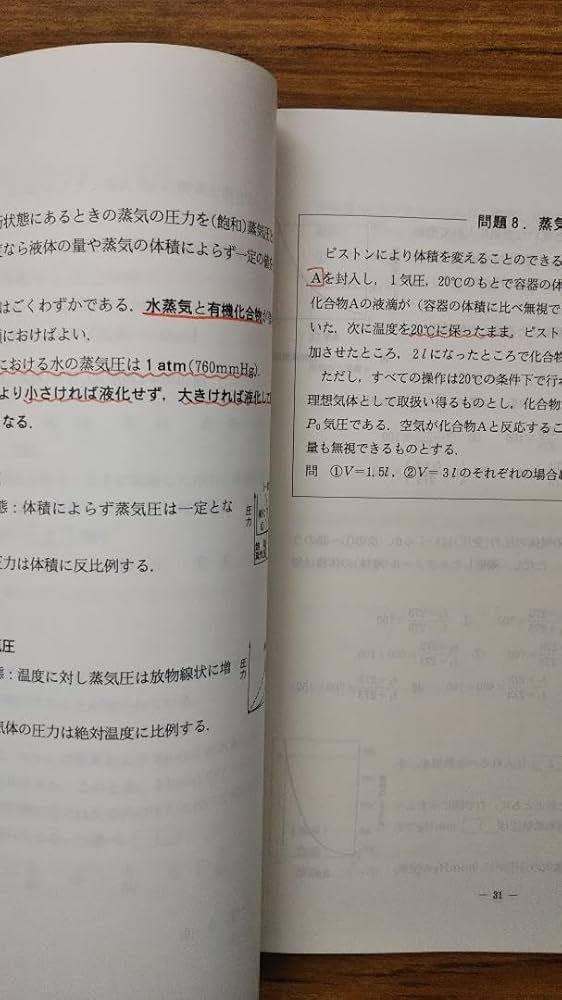 状態にあるときの蒸気の圧力を(飽和)蒸気圧と
度なら液体の量や蒸気の体積によらず一定の値を
はごくわずかである．水蒸気と有機化合物
におけばよい．
における水の蒸気圧は1atm(760mmHg)．
より小さければ液化せず，大きければ液化し
なる．
態：体積によらず蒸気圧は一定とな
圧力
圧力は体積に反比例する．
気圧
態：温度に対し蒸気圧は放物線状に増
圧力
気体の圧力は絶対温度に比例する．
問題8．蒸気
ピストンにより体積を変えることのできる
Aを封入し，1気圧，20℃のもとで容器の体
化合物Aの液滴が(容器の体積に比べ無視で
いた．次に温度を20℃に保ったまま，ピスト
加させたところ，2lになったところで化合物
ただし，すべての操作は20℃の条件下で行わ
理想気体として取扱い得るものとし，化合物
P₀気圧である．空気が化合物Aと反応するこ
量も無視できるものとする．
問 ①V=1.5l，②V=3lのそれぞれの場合
— 31 —